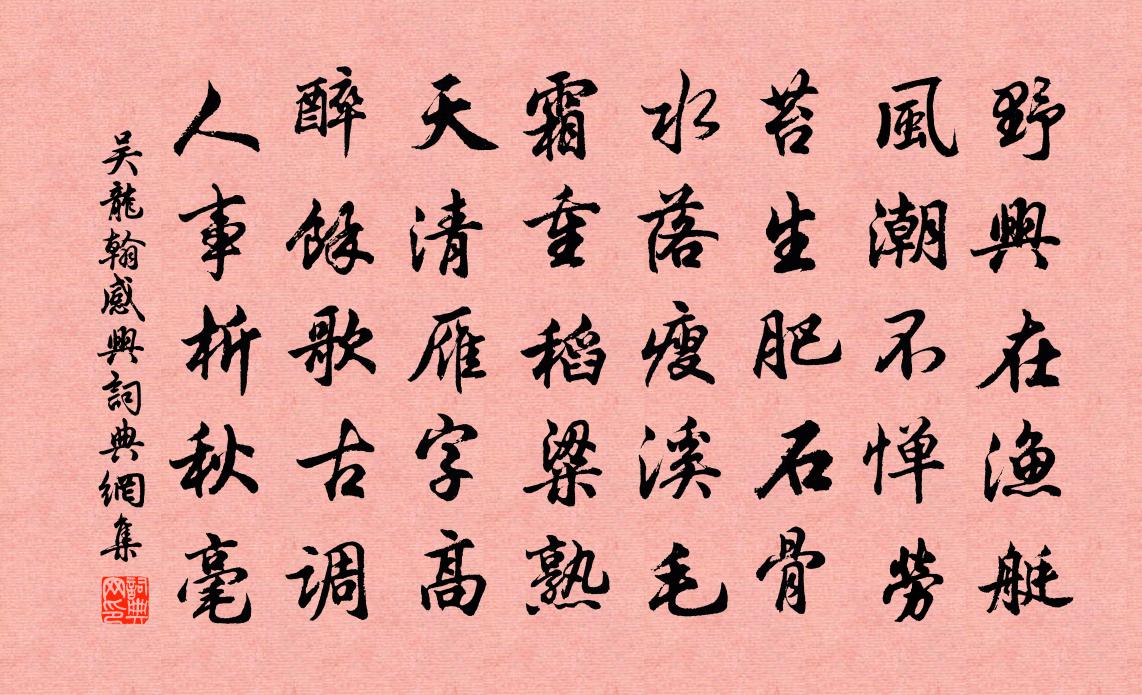 野興在漁艇
風潮不惮勞
苔生肥石骨
水落瘦溪毛
霜重稻粱熟
天清雁字高
醉餘歌古調
人事析秋毫
吴龍翰感興詞典網集
詞典網印